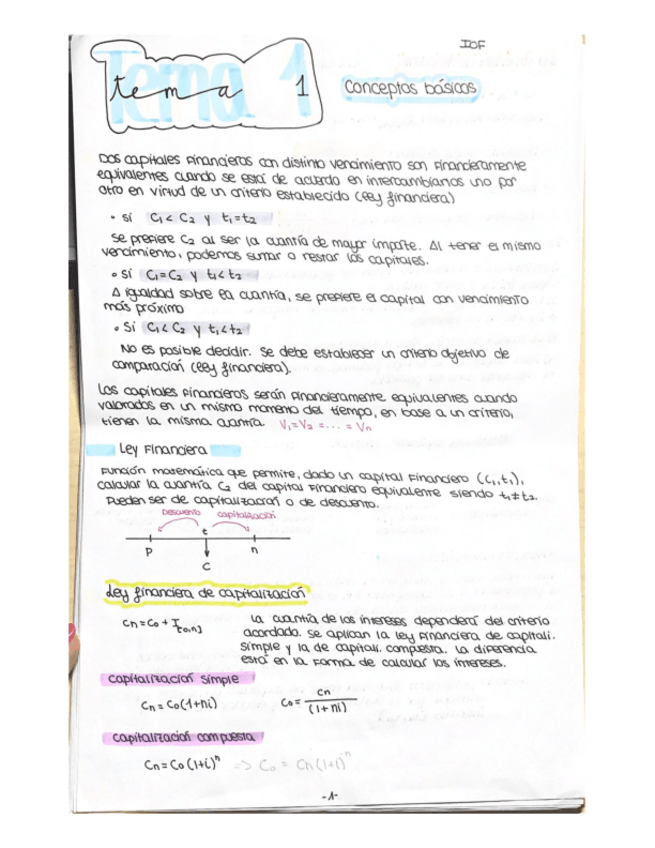 IOF
Tema 1
tema 1 Conceptos básicos
Dos capitales financieros con distinto vencimiento son financieramente
equivalentes cuando se está de acuerdo en intercambiarlos uno por
otro en virtud de un criterio establecido (ley financiera)
• Sí C₁ < C₂ y t₁=t₂
Se prefiere C₂ al ser la cuantía de mayor importe. Al tener el mismo
vencimiento, podemos sumar o restar los capitales.
• Sí C₁=C₂ y t₁<t₂
A igualdad sobre la cuantía, se prefiere el capital con vencimiento
más próximo
• Sí C₁<C₂ y t₁<t₂
No es posible decidir. Se debe establecer un criterio objetivo de
comparación (ley financiera).
Los capitales financieros serán financieramente equivalentes cuando
valorados en un mismo momento del tiempo, en base a un criterio,
tienen la misma cuantía. V₁=V₂=...=Vn
Ley Financiera
Función matemática que permite, dado un capital financiero (C₁,t₁),
calcular la cuantía C₂ del capital financiero equivalente siendo t₁≠t₂.
Pueden ser de capitalización o de descuento.
Descuento capitalización
t
p n
C
Ley financiera de capitalización
Cn=Co + I[0,n]
La cuantía de los intereses dependerá del criterio
acordado. Se aplican la ley financiera de capitali.
simple y la de capitali. compuesta. La diferencia
está en la forma de calcular los intereses.
Capitalización simple
Cn = Co(1+ni) Co = Cn/(1+ni)
Capitalización compuesta
Cn = Co(1+i)ⁿ => Co = Cn(1+i)⁻ⁿ
-1-